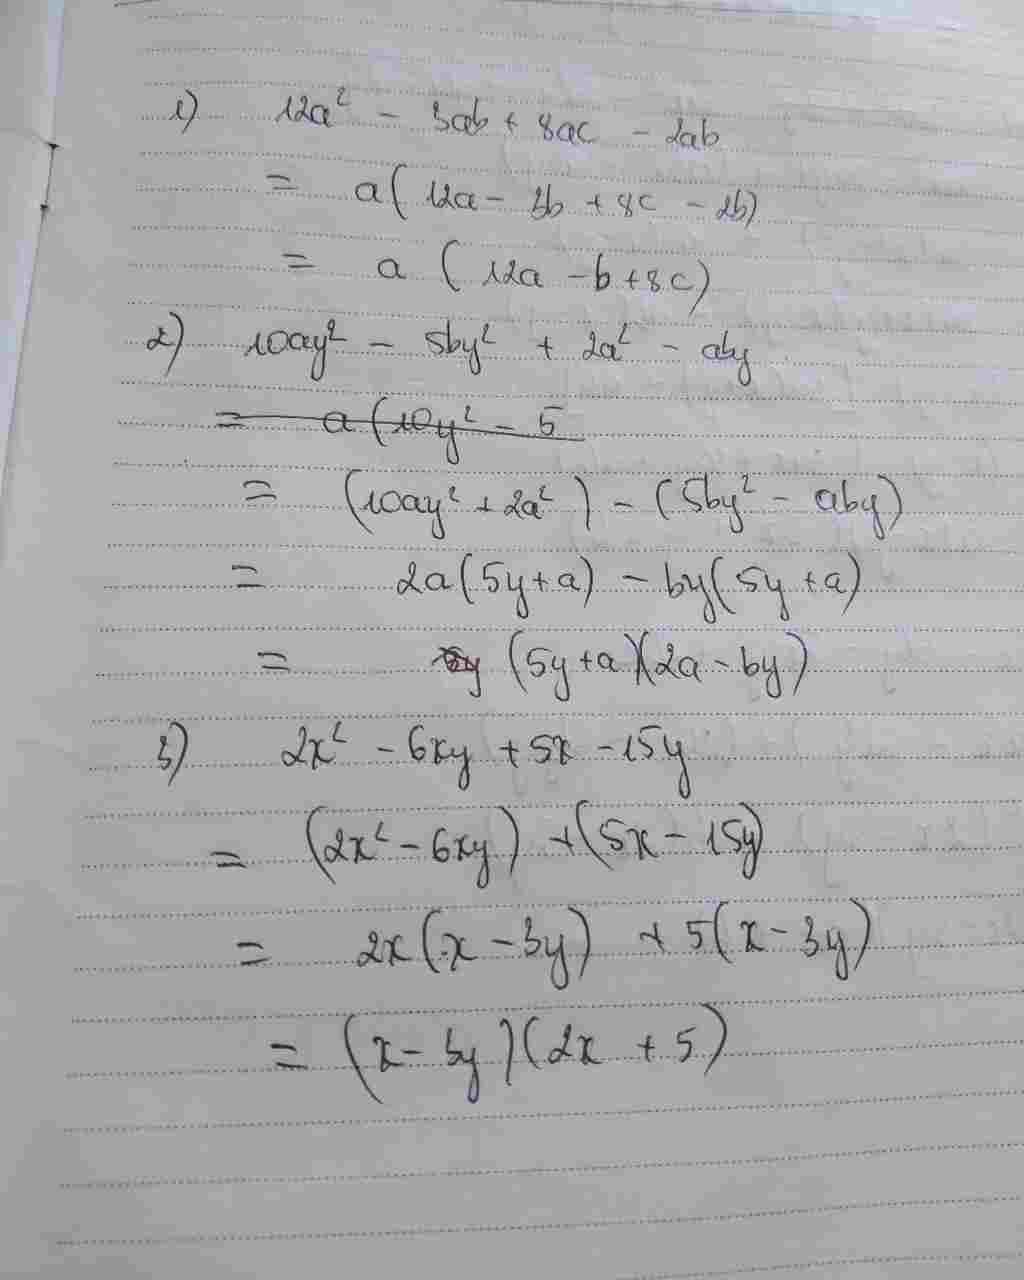 1) 12a² - 3ab + 8ac - 2ab
= a(12a - 3b + 8c - 2b)
= a (12a - b + 8c)
2) 10ay² - 5by² + 2a² - aby
= a(10y² - 5
= (10ay² + 2a²) - (5by² - aby)
= 2a(5y+a) - by(5y+a)
= (5y+a)(2a-by)
3) 2x² - 6xy + 5x - 15y
= (2x² - 6xy) + (5x - 15y)
= 2x(x - 3y) + 5(x - 3y)
= (x - 3y)(2x + 5)